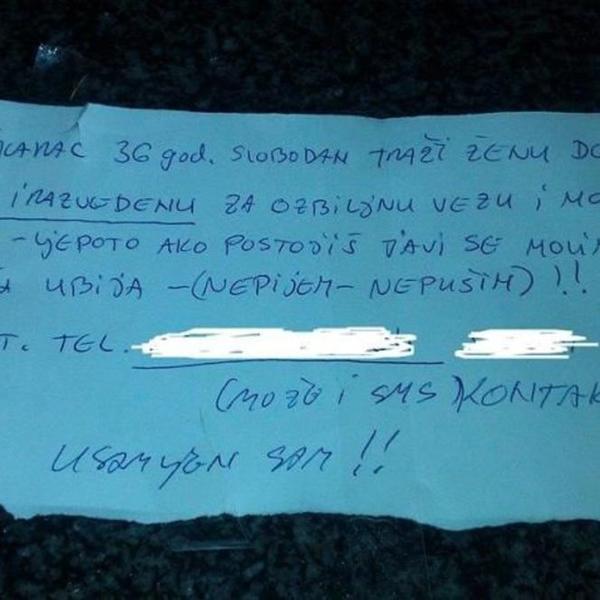 36 god. SLOBODAN TRAŽI ŽENU DO
I RAZVEDENU ZA OZBILJNU VEZU I MO
- LJEPOTO AKO POSTOJIŠ JAVI SE MOLI
UBIJA -(NEPIJEM- NEPUŠIM)!!
T. TEL.
(MOŽE I SMS) KONTAK
USAMLJEN SAM!!